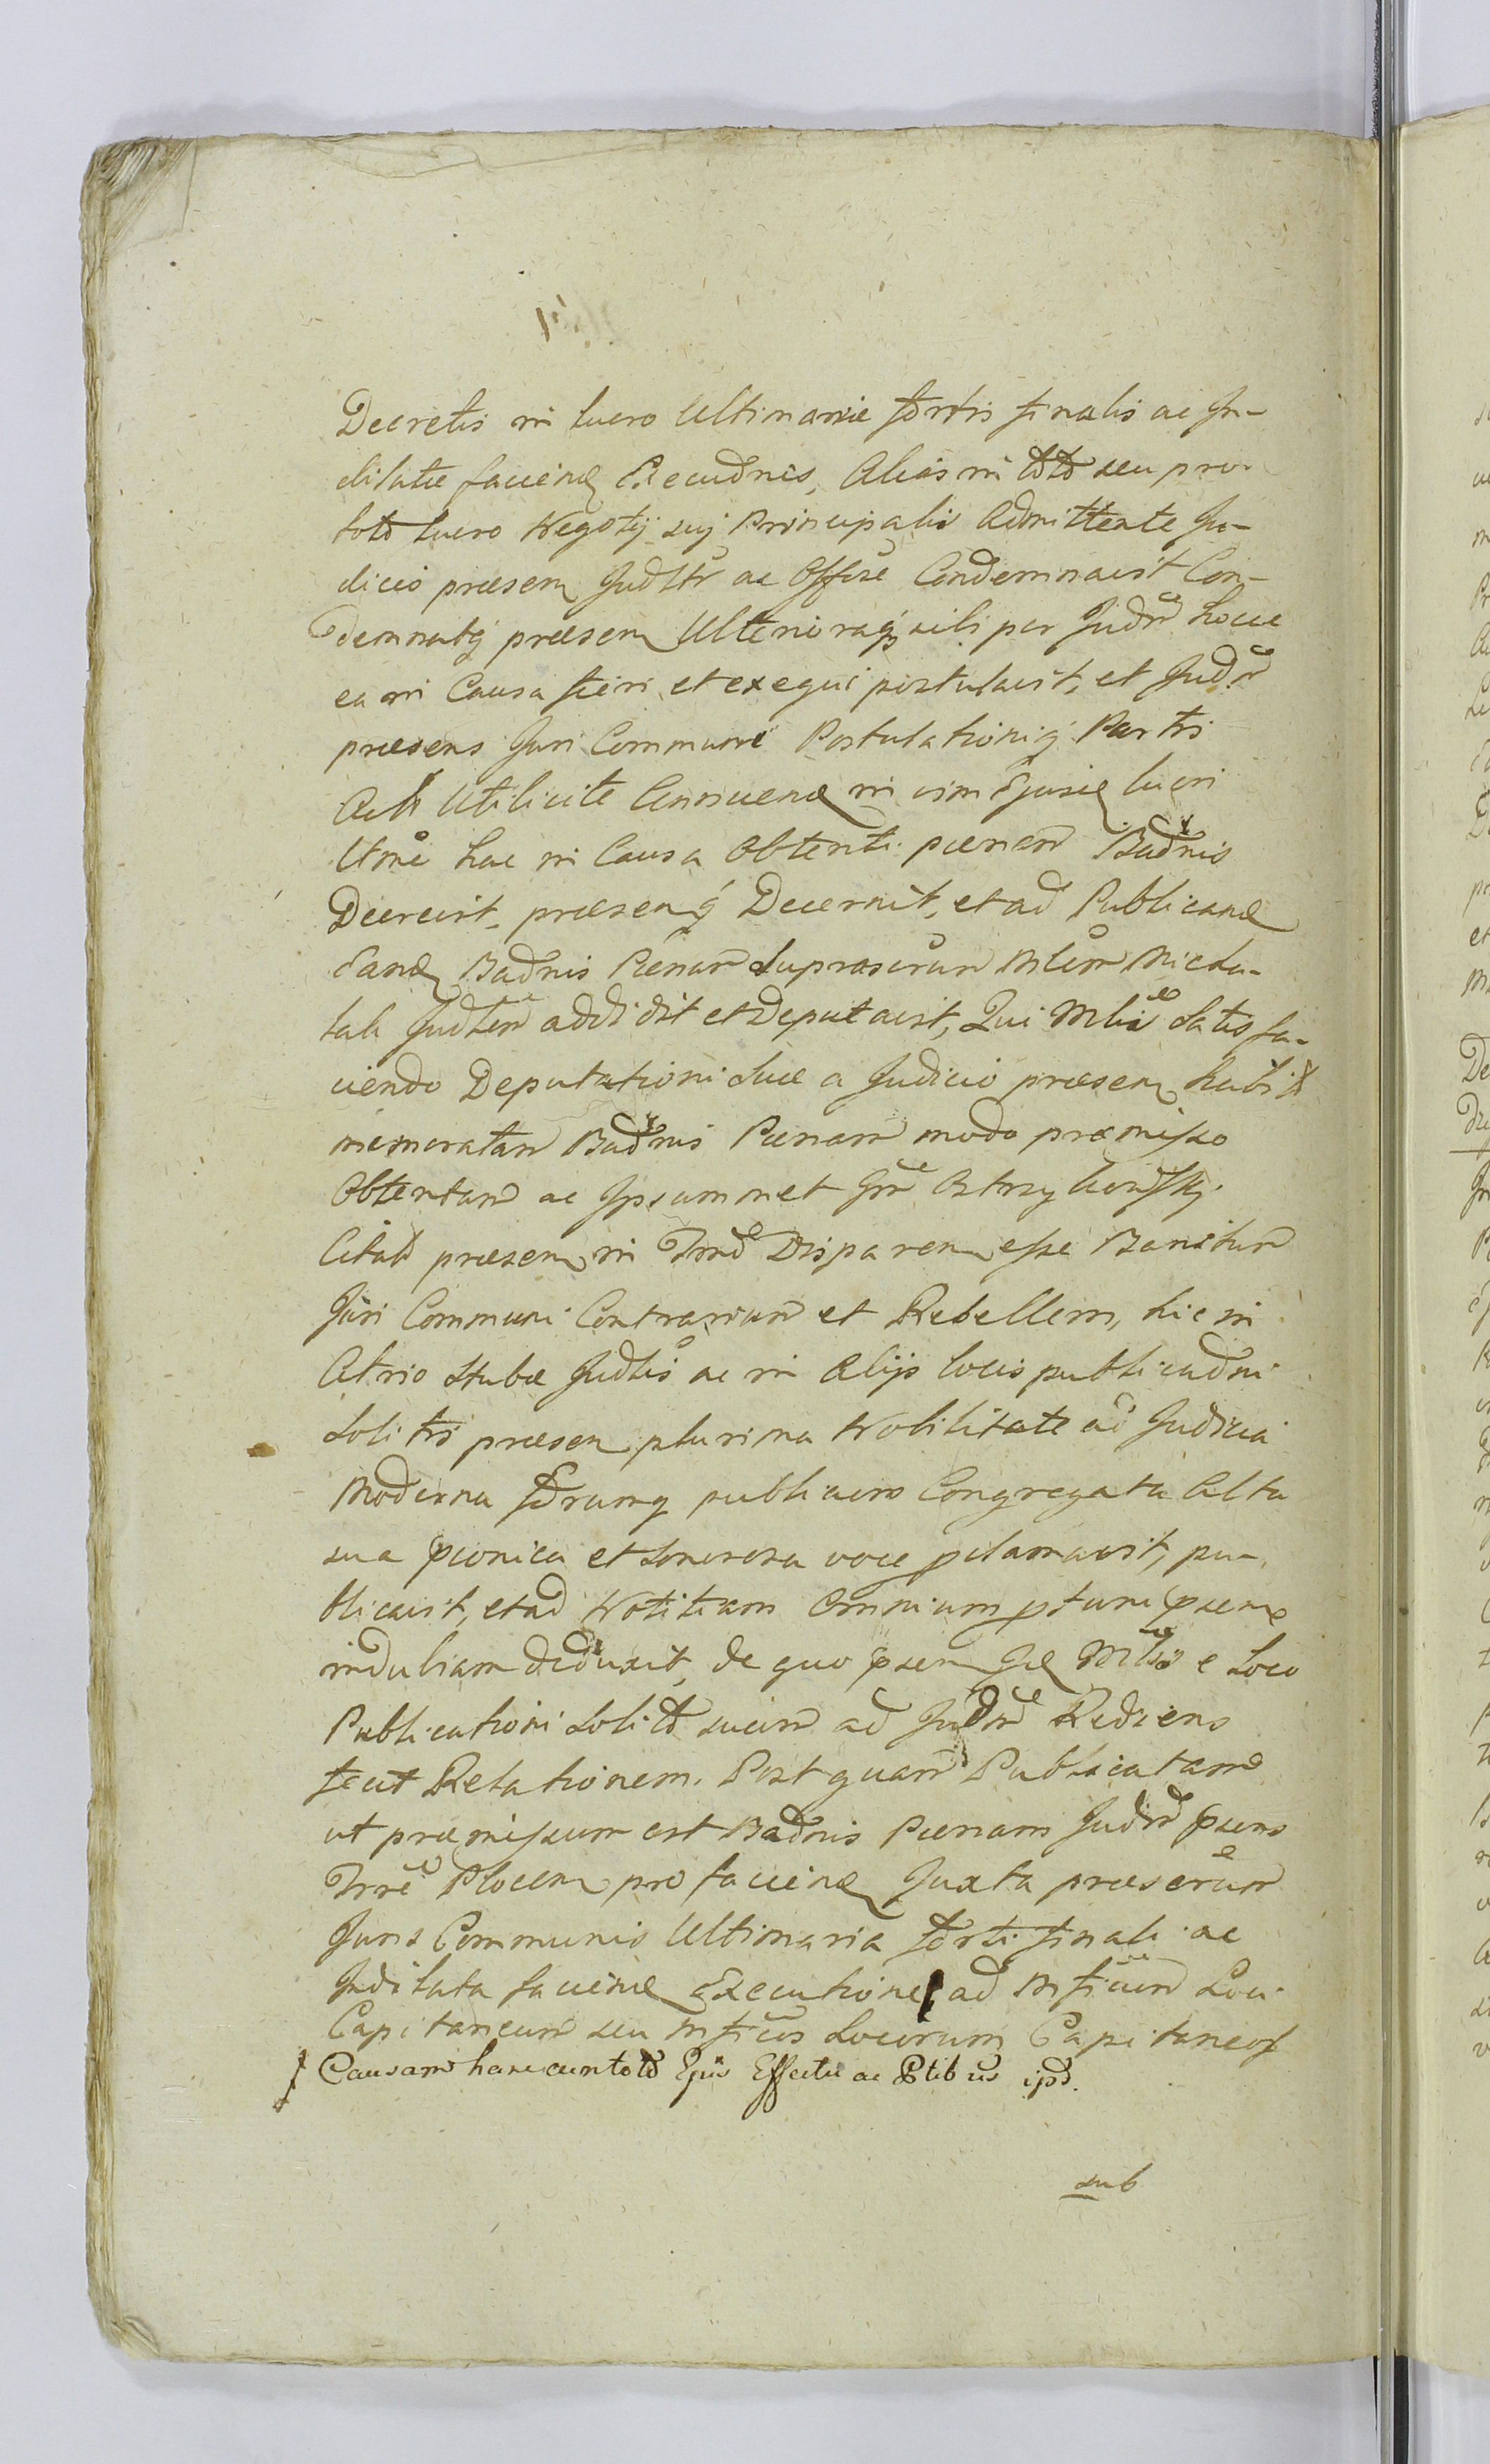 Decretis in lucro Ultimariæ fortis finalis ac In-
dilatæ faciend Execudnis, Alias in toto seu pro
toto lucro Negotÿ suj Principalis Admittente Ju-
dicio præsen Judltr ac Offise Condemnavit Con-
demnatq præsen Ulterioraq sibi per Judm hocce
ea in Causa fieri et exequi postulavit, et Judm
præsens Juri Communi Postulationiq Partis
Act Utilicite Annuend in vim Ejusd lucri
Ume hac in Causa Obtenti pænam Badnis
Decrevit, præsenq Decernit, et ad Publicand
Eand Badnis Pænam Suprascrum Mlem Nicho-
lali Judlem addidit et Deputavit, Qui Mlis Satisfa-
ciendo Deputationi Suæ a Judicio præsen habitæ
memoratam Badnis Pænam modo præmisso
Obtentam ac Ipsummet Gm
Citat præsen in Tmo Disparen esse Banitum
Juri Communi Contrarium et Rebellem, hic in
Atrio Stubæ Judlis ac in Alijs locis publicadni
Solitis præsen plurima Nobilitate ad Judicia
Moderna forumq publicum Congregata Alta
sua pconica et Sonorosa voce pclamavit, pu-
blicavit, et ad Notitiam Omnium ptum psene
indubiam deduxit, de quo psen Gd Mlis e Loco
Publicationi Solito suam ad Judm Rediens
fecit Relationem. Post quam Publicatam
ut præmissum est Badnis Pænam Judm psens
Trre Plocen pro faciend Juxta præscrum
Juris Communis Ultimaria forti finali ac
Indilata faciend Executione ad Mficum Loci
Capitaneum seu Mficos Locorum Capitaneos
Causam hanc cum toto Ejus Effectu ac Ptibus ipsd.
sub